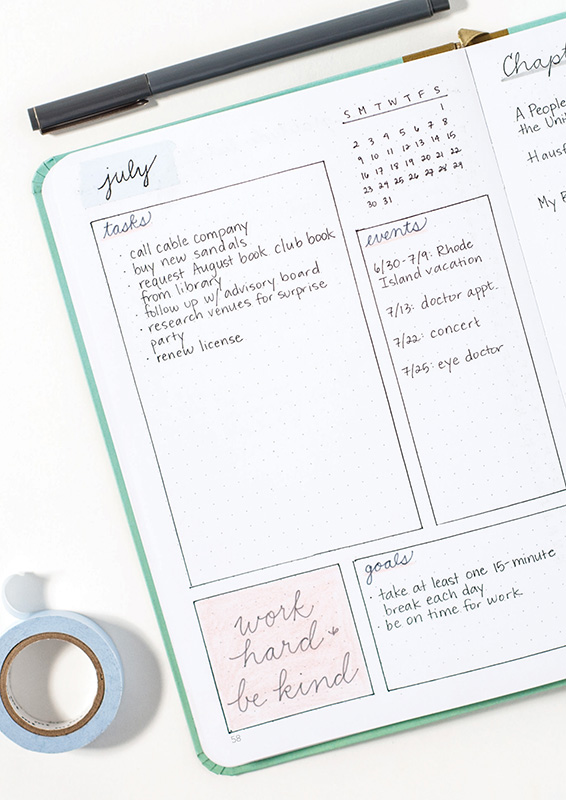 july
S M T W T F S
1
2 3 4 5 6 7 8
9 10 11 12 13 14 15
16 17 18 19 20 21 22
23 24 25 26 27 28 29
30 31
tasks
· call cable company
· buy new sandals
· request August book club book
from library
· follow up w/ advisory board
· research venues for surprise
party
· renew license
events
6/30-7/9: Rhode
Island vacation
7/13: doctor appt.
7/22: concert
7/25: eye doctor
work
hard +
be kind
goals
· take at least one 15-minute
break each day
· be on time for work
58
Chapt
A People
the Uni
Hausf
My B